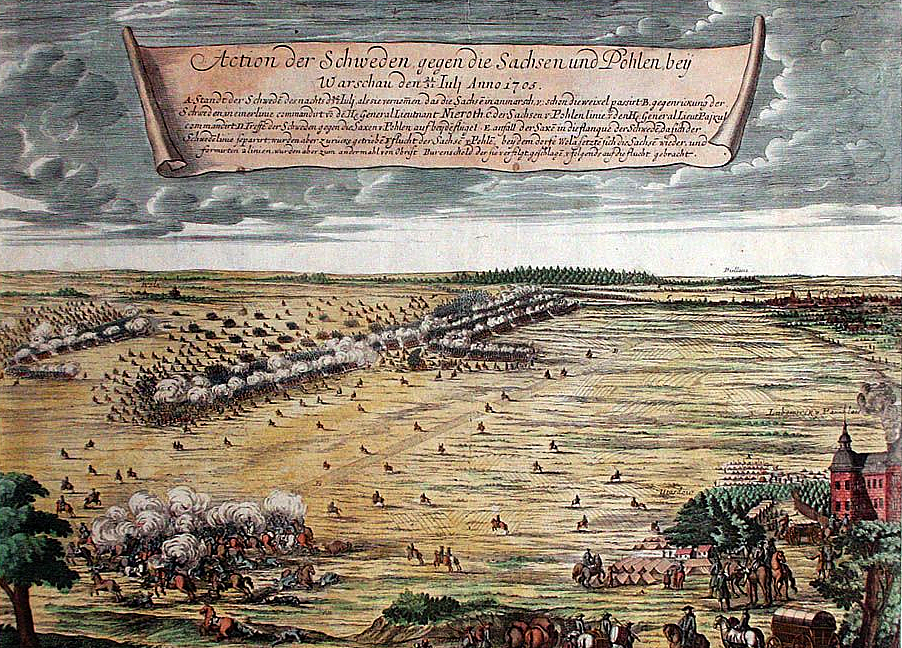 Action der Schweden gegen die Sachsen und Pohlen, bey
Warschau den Iulj Anno 1705.
A. Stand der Schwedē des nachts Iulj, als sie vernom̄en das die Sachsē in anmarsch, v. schon die weixel passirt B. gegenrickung der
Schweden, in einer linie commandirt vō de Hē General Lieutnant Nieroth. C. der Sachsen v. Pohlen linie v. den Hē General Lieut Paykul
commandirt. D. Treffē der Schweden gegen die Saxen v. Pohlen auf beyde flügel. E. anfall der Saxē in die flanque der Schwede, da sich der
Schweden linie separirt, wurden aber zuruck getriebē. flucht der Sachsē v. Pohlē, bey dem dorfe Wola setzte sich die Sachsē wieder, und
formirten linien, wurden aber zum andermahl von Obrist Burenscheld der sie verfolgt, geschlagē, v. folgends auf die flucht gebracht.